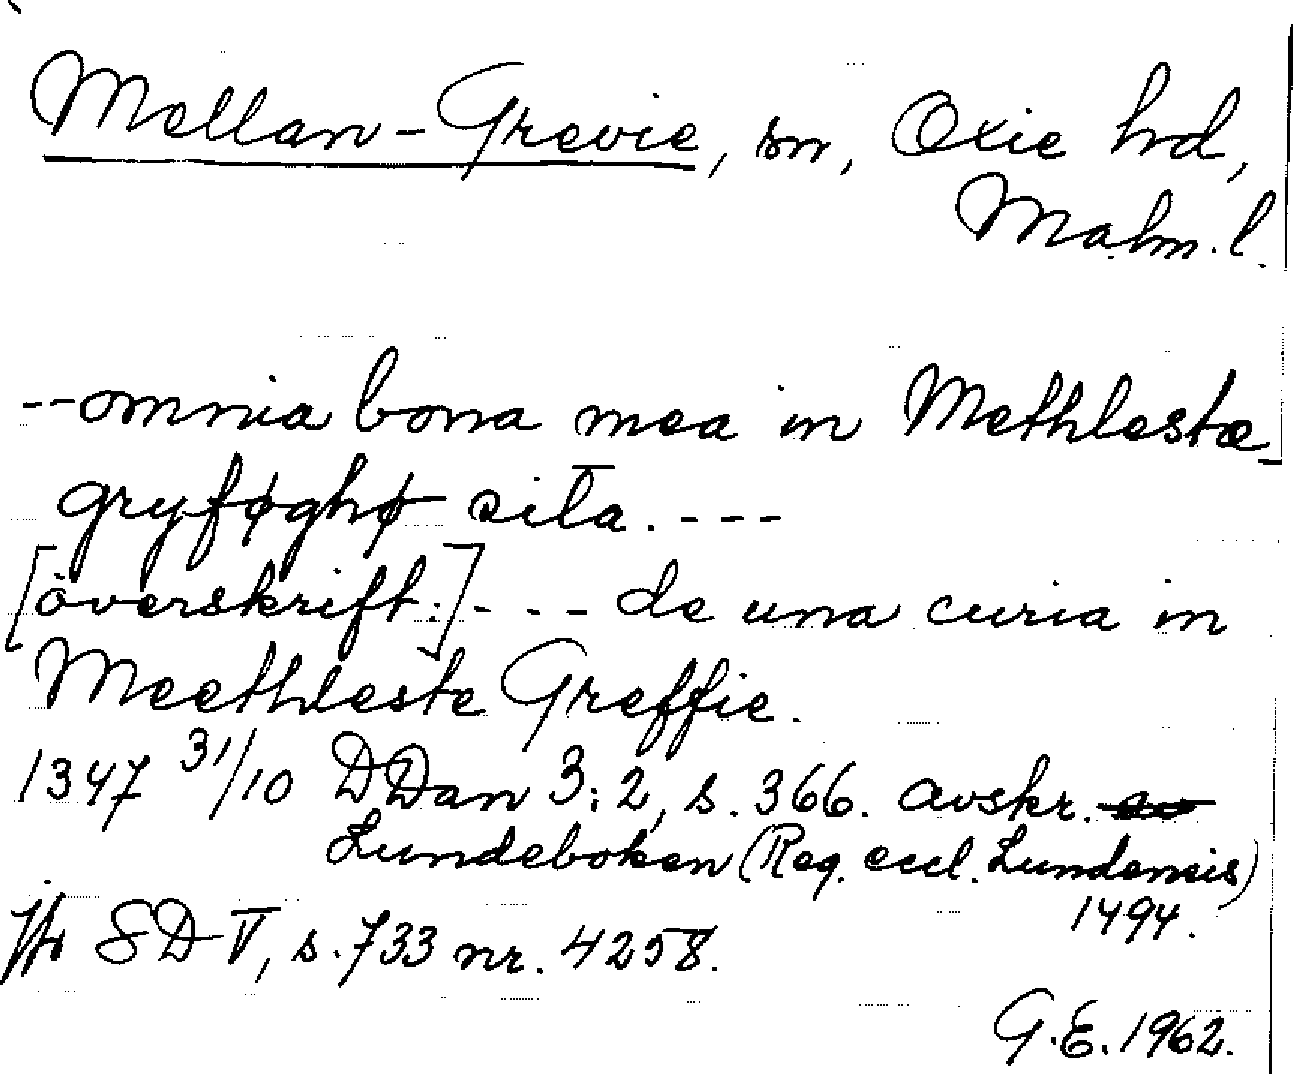 Mellan-Grevie, sn, Oxie hd,
Malm. l.
--omnia bona mea in Methlestæ-
gryføghø sita. ----
[överskrift:] ---- de una curia in
Meethleste Greffie.
1347 31/10 DDan 3:2, s. 366. Avskr.
Lundeboken (Reg. eccl. Lundensis)
1494.
Jfr SD V, s. 733 nr. 4258.
G.E. 1962.